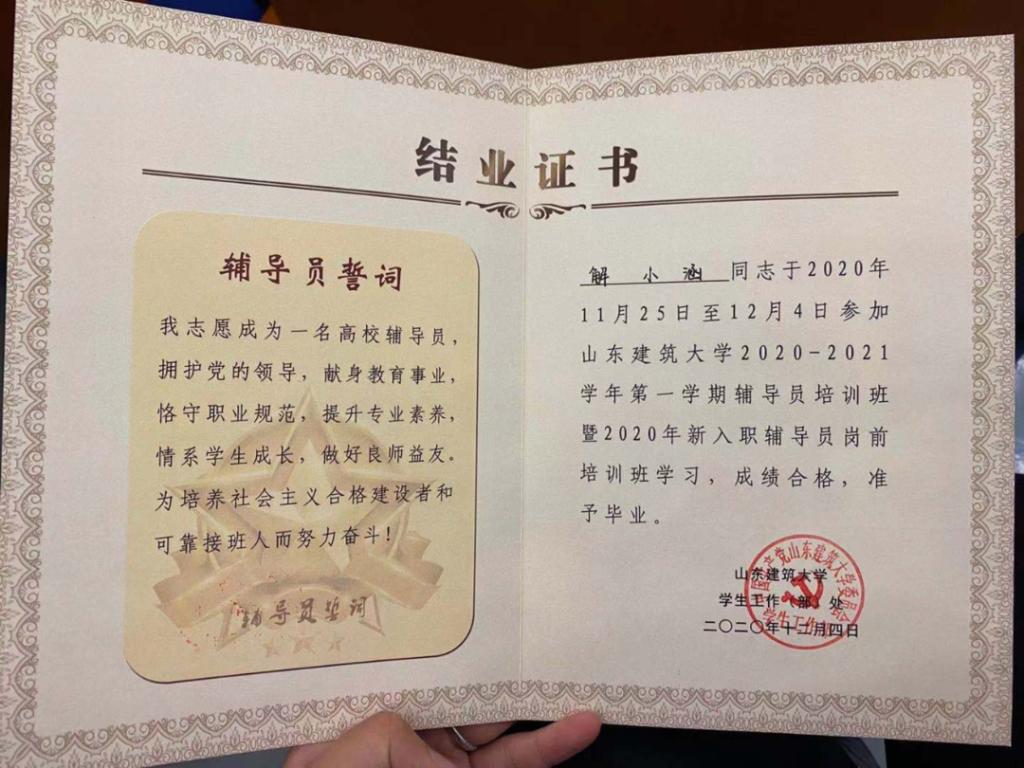 结业证书
辅导员誓词
我志愿成为一名高校辅导员，
拥护党的领导，献身教育事业，
恪守职业规范，提升专业素养，
情系学生成长，做好良师益友。
为培养社会主义合格建设者和
可靠接班人而努力奋斗！
辅导员誓词
解小涵同志于2020年
11月25日至12月4日参加
山东建筑大学2020-2021
学年第一学期辅导员培训班
暨2020年新入职辅导员岗前
培训班学习，成绩合格，准
予毕业。
山东建筑大学
学生工作（部）处
二〇二〇年十二月四日
中国共产党山东建筑大学委员会
学生工作部